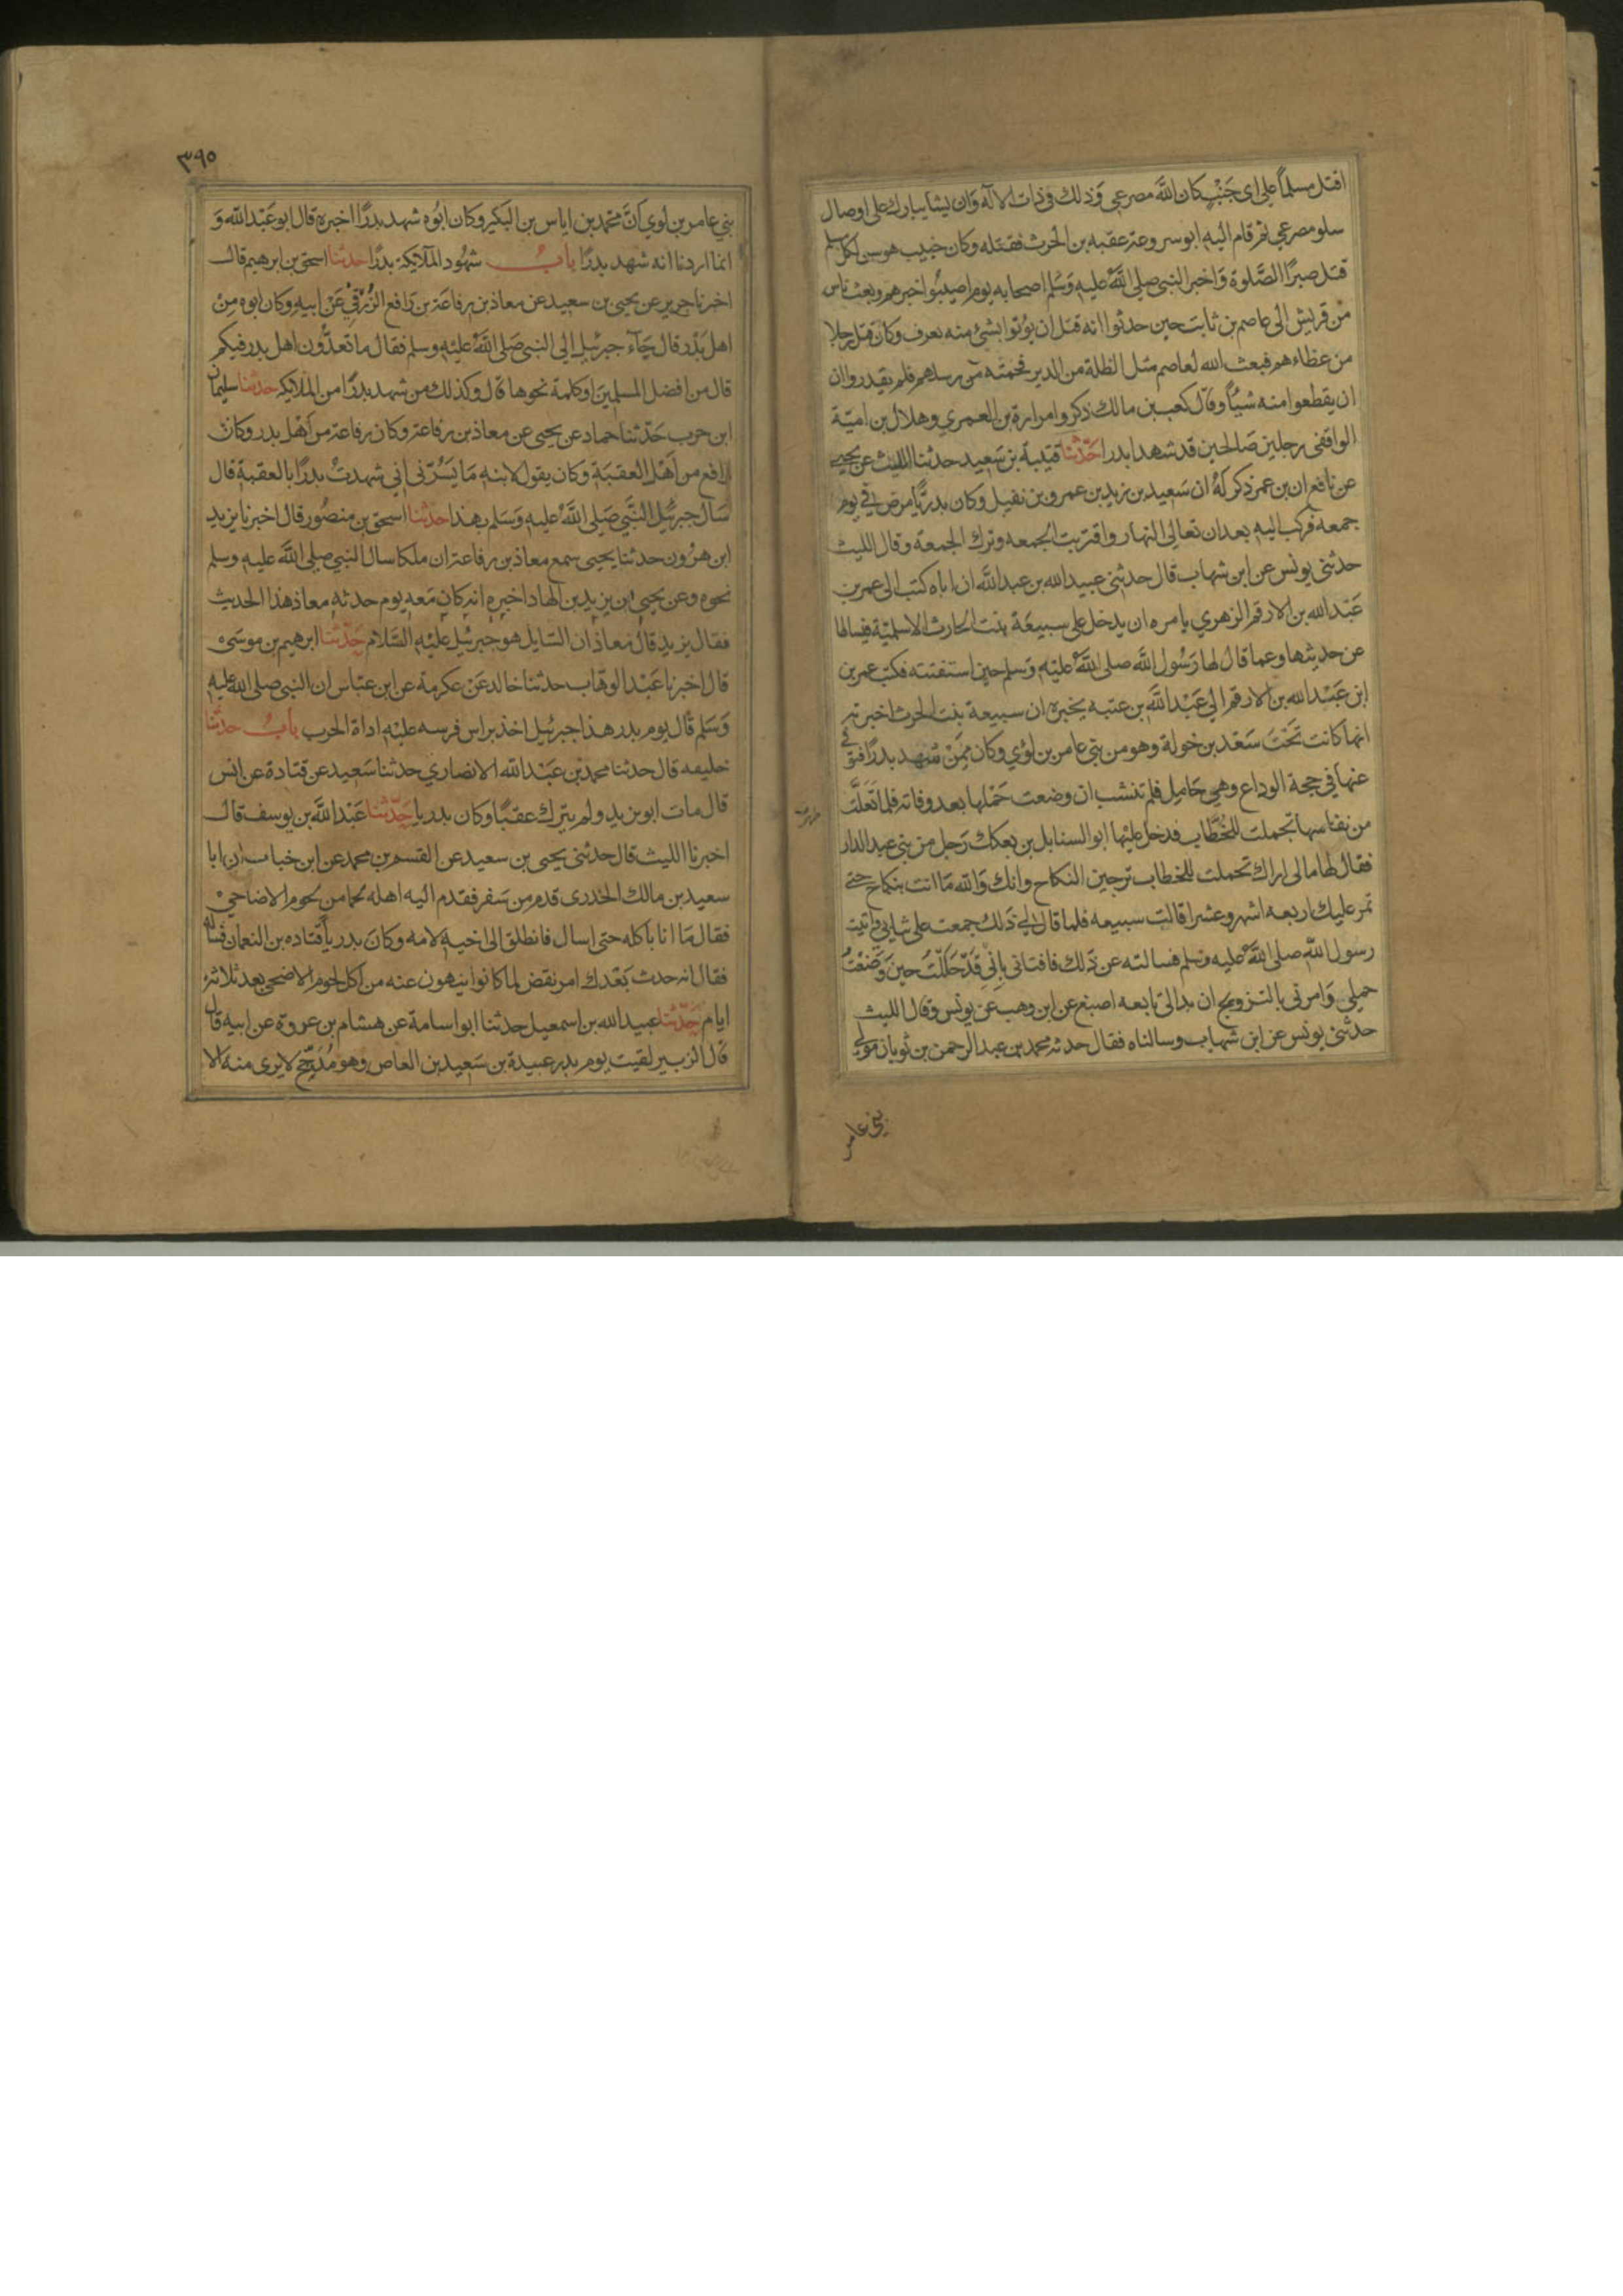 اقتل مسلماً على اى جَنْبٍ كان اللَّه مصرعي وَذلك فى ذات الاله وَان يشا يبارك على اوصال
سلو مصرعي ثم قام اليه ابو سروعة عقبه بن الحرث فقتله وكان خبيب هو سن لكل مسلم
قتل صبرًا الصَّلوة وَاخبر النبي صلى اللَّه عليه وَسَلم اصحابه يوم اصيبُوا خبرهم وبعث ناس
من قريش الى عاصم بن ثابت حين حدثوا انه قتل ان يؤتوا بشئ منه يعرف وكان قتل رجلا
من عظماءهم فبعث الله لعاصم مثل الظلة من الدبر فحمته من رسلهم فلم يقدروا ان
ان يقطعوا منه شيئًا وقال كعب بن مالك ذكروا مرارة بن العمري وهلال بن اميّة
الواقفى رجلين صَالحين قد شهدا بدرا حَدّثنا قتيبة بن سَعيد حدثنا الليث عن يحيى
عن نافع ان بن عمر ذكر لَهُ ان سَعيد بن زيد بن عمرو بن نفيل وكان بدريًّا مرض في يوم
جمعه فركب اليه بعد ان تعالى النهار واقتربت الجمعه وترك الجمعة وقال الليث
حدثنى يونس عن ابن شهاب قال حدثنى عبيد الله بن عبد اللَّه ان اباه كتب الى عمر بن
عَبْد الله بن الارقم الزهري يامره ان يدخل على سبيعَة بنت الحارث الاسلميّة فيسالها
عن حديثها وعما قال لها رَسُول اللَّه صلى اللَّه عليْه وَسلم حين استفتته فكتب عمر بن
ابن عَبْد الله بن الارقم الي عَبْد اللَّه بن عتبه يخبره ان سبيعة بنت الحرث اخبرته
انها كانت تَحْتَ سَعْد بن خولة وهو من بني عامر بن لؤي وكان مِمَنْ شهد بدرًا فتوفى
عنها في حجة الوداع وهي حَامِل فلم تنشب ان وضعت حَمْلها بعد وفاته فلما تَعَلَّت
من نفاسها تجملت للخُطَّاب فدخل عليْها ابو السنابل بن بعكك رَجل من بنى عبد الدار
فقال لها مالى اراك تجملت للخطاب ترجين النكاح وانك وَالله مَا انت بنكاح حتى
تمر عليك اربعه اشهر وعشرا قالت سبيعه فلما قال لي ذَلك جمعت على ثيابى واتيت
رسول اللَّه صلى اللَّه عليه وسلم فسالته عن ذَلك فافتانى بِانِّي قَدْ حَلَلْتُ حينَ وَضعْتُ
حملى وَامرنى بالتزويج ان بدالى تابعه اصبغ عن ابن وهب عن يونس وقال الليث
حدثنى يونس عن ابن شهاب وسالناه فقال حدثه محمد بن عبد الرحمن بن ثوبان مولى
بنى عامر
٣٩٥
بني عامر بن لوي أنَّ محمد بن اياس بن البَكير وكان ابُوه شهد بدرًا اخبره قال ابو عَبْد الله وَ
انما اردنا انه شهد بدرًا بابُ شهُود الملآيكة بدرًا حدثنا اسحق بن ابرهيم قال
اخبرنا جرير عن يحيى بن سعيد عن معاذ بن رفاعَة بن رَافع الزُّرَقيِّ عَنْ ابيهِ وكان ابوه مِنْ
اهل بَدْر قال جَآءَ جبرئيل الى النبى صَلى اللَّه عليْه وسلم فقال ما تعدُّون اهل بدر فيكم
قال من افضل المسلمينَ اوكلمة نحوها قال وكذلك من شهد بدرًا من الملايكة حدثنا سليمان
ابن حرب حَدّثنا حماد عن يحيى عن معاذ بن رفاعة وكان رفاعة من اَهْل بدر وكان
رافع من اَهْل العقبَة وكان يقول لابنهِ مَا يَسُرّنى اني شهدتُ بدرًا بالعقبة قال
سَال جبرئيل النَّبي صَلى اللَّه عليه وَسَلم بهذا حَدّثنا اسحق بن منصُور قال اخبرنا يزيد
ابن هرُون حدثنا يحيى سمع معاذ بن رفاعة ان ملكا سال النبي صلى اللَّه عليه وسلم
نحوه وعن يحيى ان يزيد بن الهاد اخبره انه كان مَعه يوم حدثه معاذ هَذا الحديث
فقال يزيد قال مُعاذ ان السّايل هو جبرئيل عليْه السَّلام حَدّثنا ابرهيم بن موسَى
قال اخبرنا عَبْد الوهّاب حدثنا خالد عَنْ عكرمة عن ابن عبّاس ان النبى صلى الله عليه
وَسَلم قال يوم بدر هذا جبرئيل اخذ براس فرسه عليْه اداة الحرب بابُ حدثنا
خليفه قال حدثنا محمد بن عَبْد الله الانصاري حدثنا سَعيد عن قتادة عن انس
قال مات ابو زيد ولم يترك عقبًا وكان بدريا حَدّثنا عَبْد اللَّه بن يوسف قال
اخبرنا الليث قال حدثنى يحيى بن سعيد عن القسم بن محمد عن ابن خباب ان ابا
سعيد بن مالك الخدرى قدم من سَفر فقدم اليه اهله لحما من لحوم الاضاحي
فقال مَا انا باكله حتى اسال فانطلق الى اخيه لامه وكانَ بدريا قتاده بن النعمان فساله
فقال انه حدث بَعْدك امر نقض لما كانوا ينهون عنه من اكل لحوم الاضحى بعد ثلاثة
ايام حَدّثنا عبيد الله بن اسمعيل حدثنا ابو اسامة عن هشام بن عروة عن ابيه قال
قال الزبير لقيت يوم بدر عبيدة بن سَعيد بن العاص وهو مُدَجَّج لا يرى منه الا